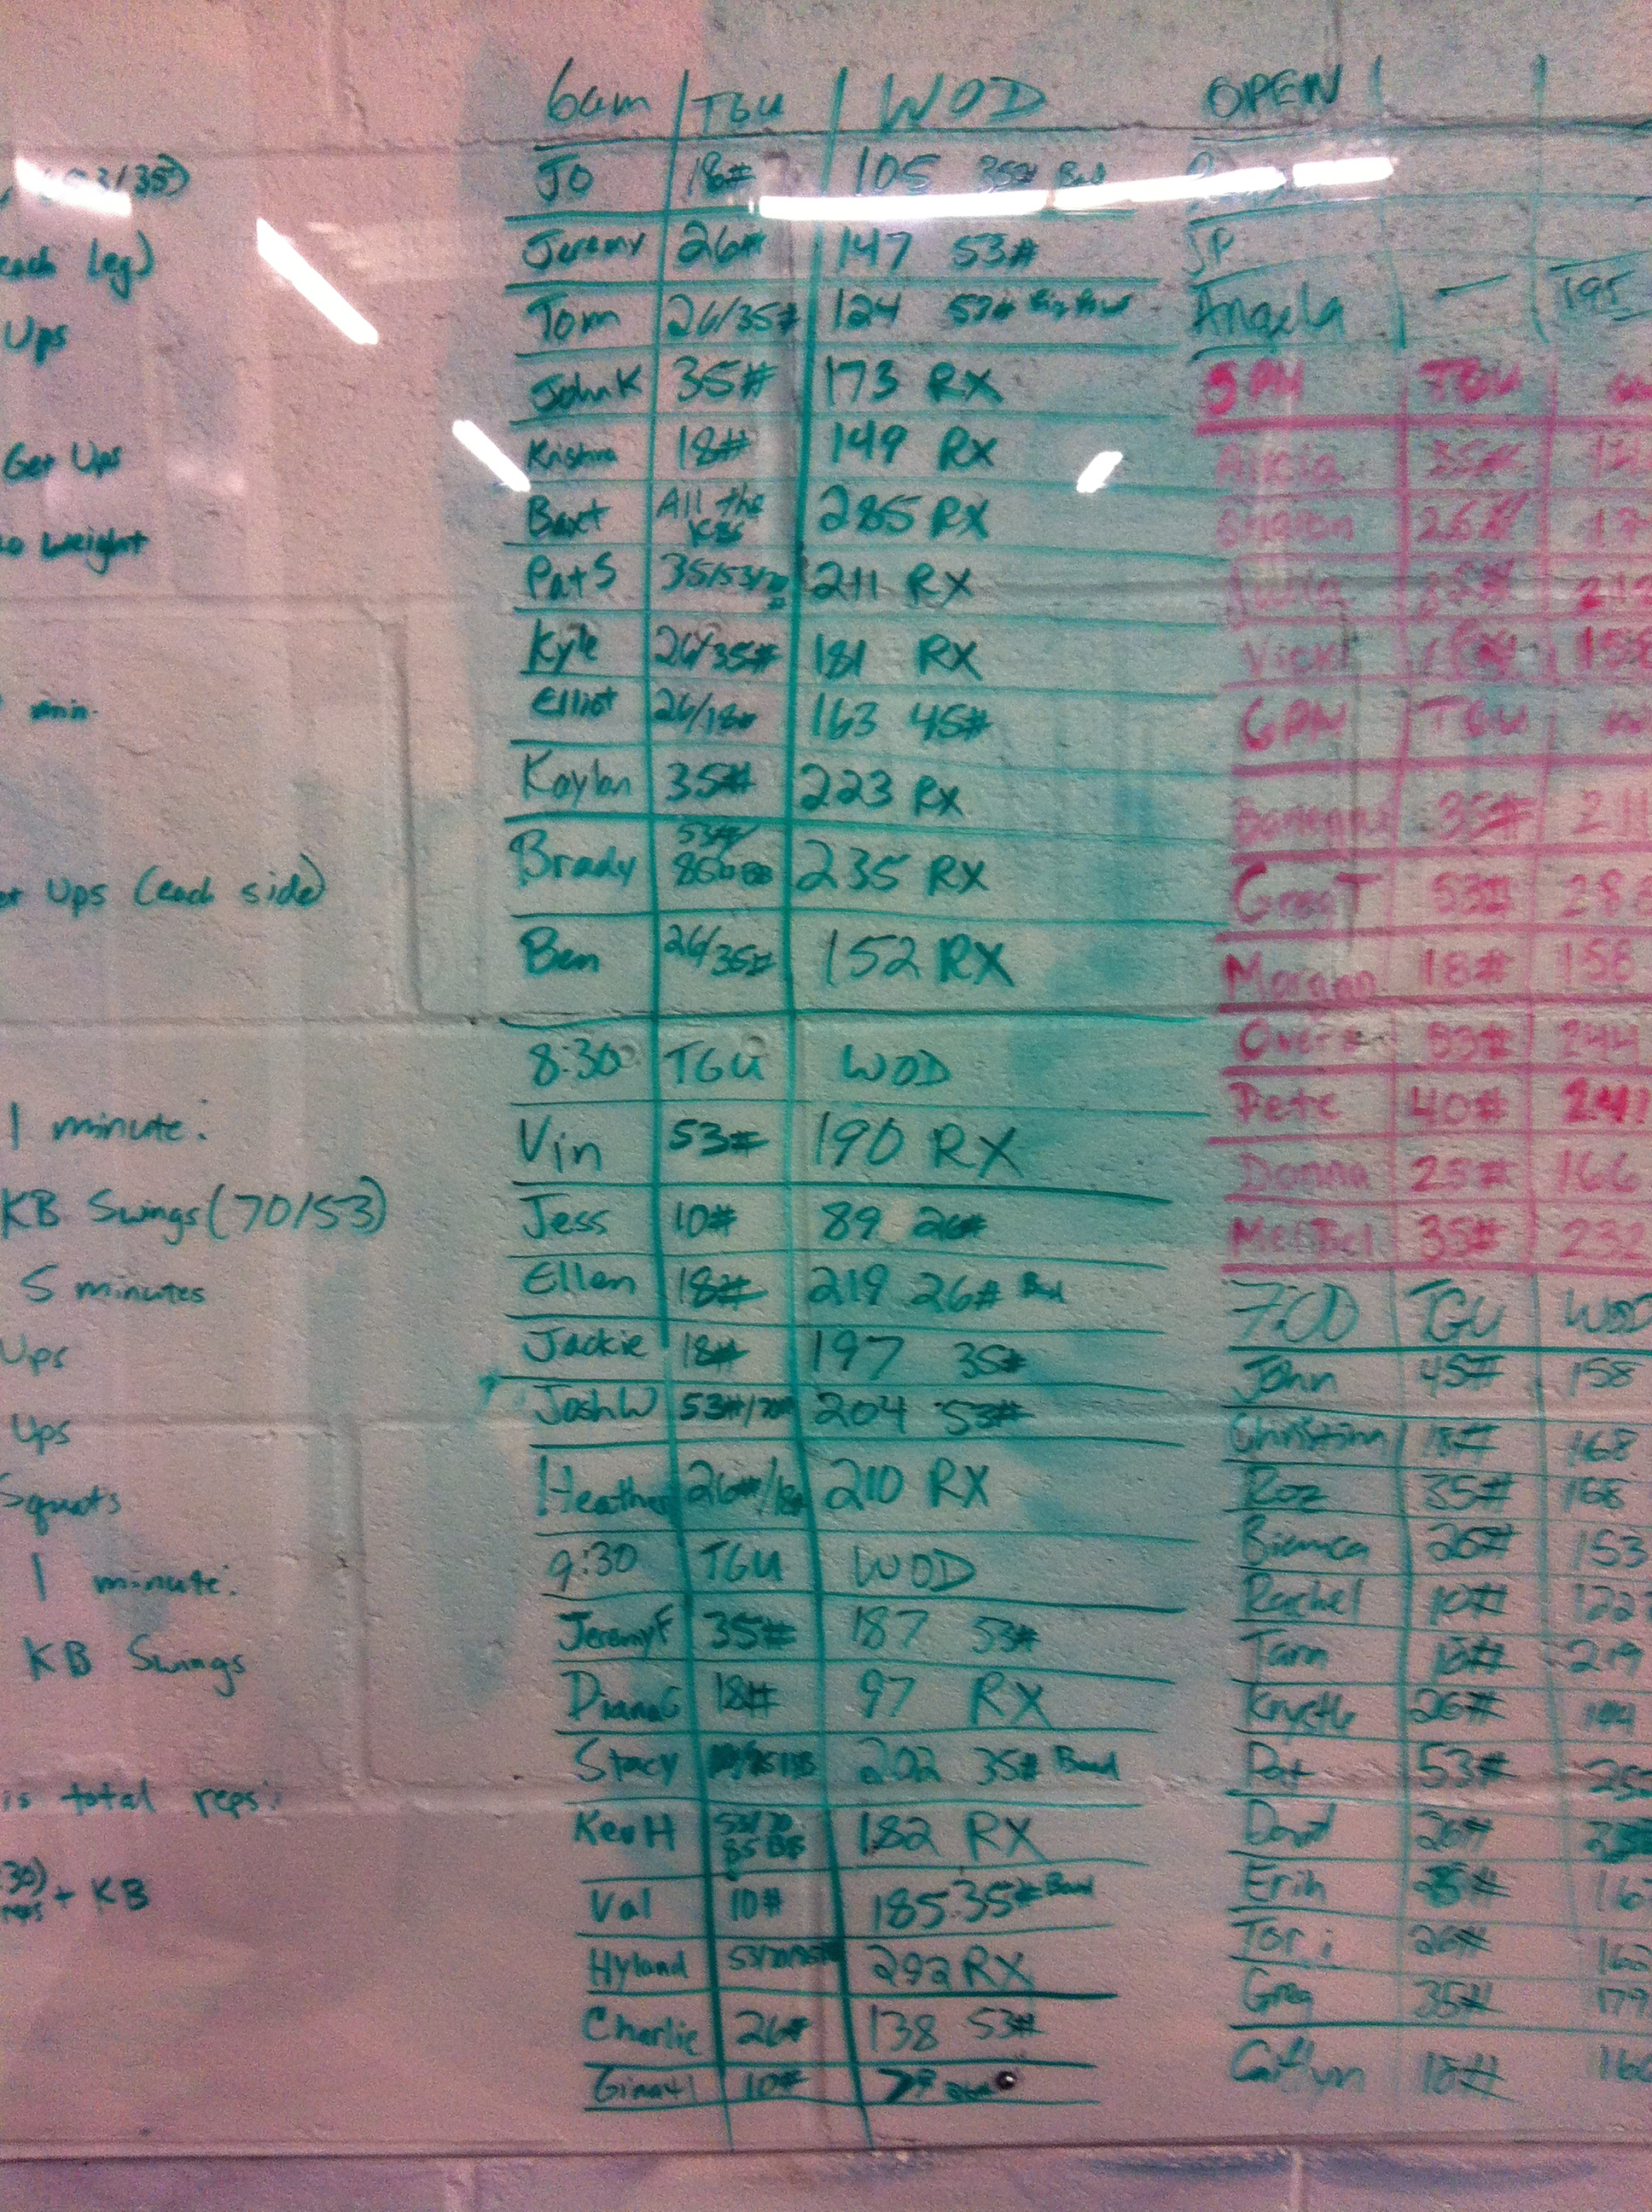 /35)
each leg)
Ups
Get Ups
no weight
min.
Ups (each side)
1 minute:
KB Swings (70/53)
5 minutes
Ups
Ups
Squats
1 minute:
KB Swings
is total reps:
+ KB
6am TGU WOD
Jo 18# 105 35#
Jeremy 26# 147 53#
Tom 26/35# 124 53#
John K 35# 173 RX
Kristina 18# 149 RX
Baxt All the KBs 285 RX
Pat S 35/53/70 211 RX
Kyle 26/35# 181 RX
Elliot 26/18# 163 45#
Kaylan 35# 223 RX
Brady 53#/ 235 RX
Ben 26/35# 152 RX
8:30 TGU WOD
Vin 53# 190 RX
Jess 10# 89 26#
Ellen 18# 219 26# Band
Jackie 18# 197 35#
Josh W 53#/70# 204 53#
Heather 26#/18# 210 RX
9:30 TGU WOD
Jeremy F 35# 187 53#
Diana G 18# 97 RX
Stacy 202 35# Band
Kev H 53/70 182 RX
Val 10# 185 35# Band
Hyland 292 RX
Charlie 26# 138 53#
10#
OPEN
JP
Angela — 195
5PM TGU
Alicia 35#
Sharon 26#
Julia 35# 212
Vicki
6PM TGU
35# 211
Greg T 53# 28
Morgan 18# 158
53# 244
Pete 40# 24
Donna 25# 166
Mel Bel 35# 232
7:00 TGU WOD
John 45# 158
18# 168
Roz 35# 168
Bianca 26# 153
Rachel 10# 122
Tara 18# 219
Krystle 26#
Pat 53# 25
David 26#
Erin
Tori 26# 162
Greg 35# 179
Caitlyn 18# 16